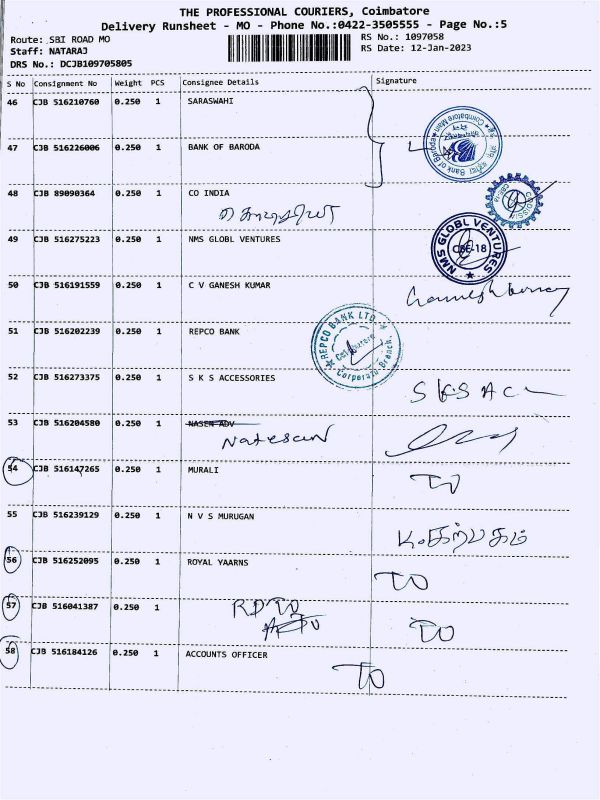 THE PROFESSIONAL COURIERS, Coimbatore
Delivery Runsheet - MO - Phone No.:0422-3505555 - Page No.:5
Route: SBI ROAD MO RS No.: 1097058
Staff: NATARAJ RS Date: 12-Jan-2023
DRS No.: DCJB109705805
S No Consignment No Weight PCS Consignee Details Signature
46 CJB 516210760 0.250 1 SARASWAHI
47 CJB 516226006 0.250 1 BANK OF BARODA
48 CJB 89090364 0.250 1 CO INDIA
49 CJB 516275223 0.250 1 NMS GLOBL VENTURES
NMS GLOBL VENTURES CBE-18
50 CJB 516191559 0.250 1 C V GANESH KUMAR
51 CJB 516202239 0.250 1 REPCO BANK
REPCO BANK LTD. Coimbatore Branch.
52 CJB 516273375 0.250 1 S K S ACCESSORIES
S K S A C
53 CJB 516204580 0.250 1 NASEN ADV
Natesan
54 CJB 516147265 0.250 1 MURALI
TO
55 CJB 516239129 0.250 1 N V S MURUGAN
க.கற்பகம்
56 CJB 516252095 0.250 1 ROYAL YAARNS
TO
57 CJB 516041387 0.250 1
RDTO TO
58 CJB 516184126 0.250 1 ACCOUNTS OFFICER
TO